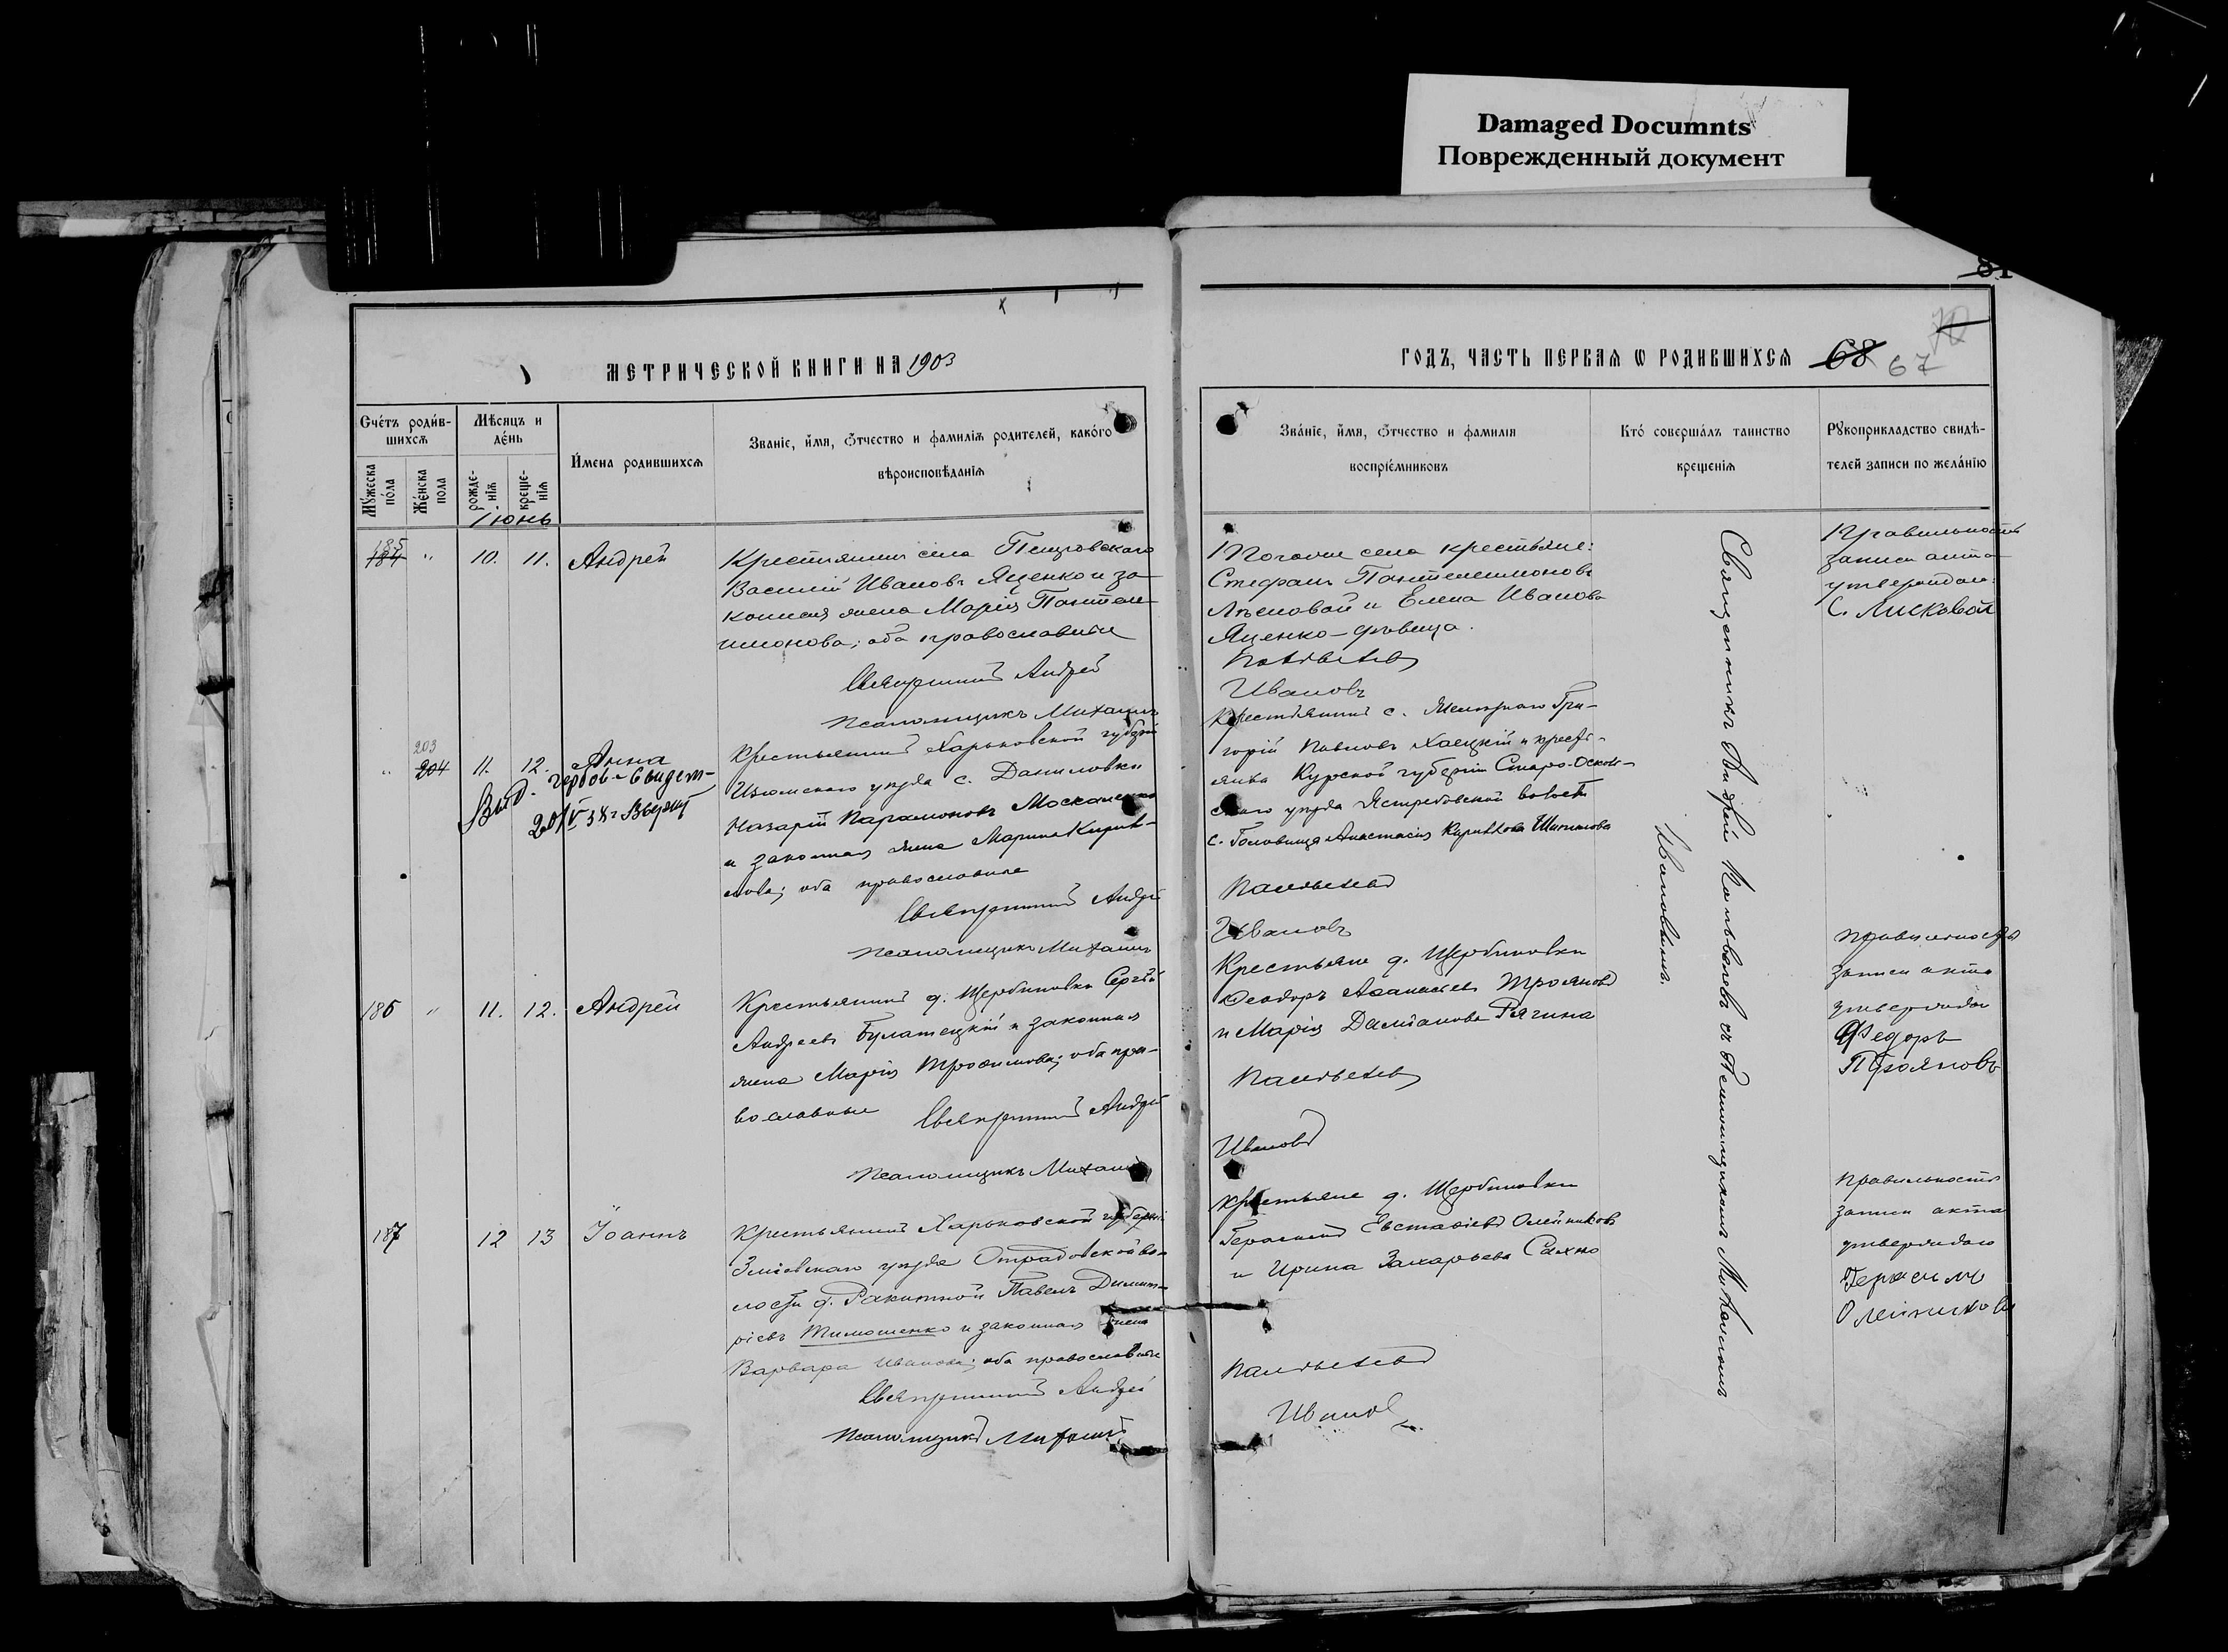 Damaged Documnts
Поврежденный документ
81
МЕТРИЧЕСКОЙ КНИГИ НА 1903
ГОДЪ, ЧАСТЬ ПЕРВАЯ Ѡ РОДИВШИХСЯ 68 67 70
Счéтъ роди́в-
шихся
Мꙋ́жеска
по́ла
Же́нска
пола
Мѣсяцъ и
де́нь
рожде-
нія
креще-
нія
И́мена родившихся
Званіе, и́мя, ѻ҆́тчество и фамилія родителей, како́го
вѣроисповѣданія
Зва́ніе, и́мя, ѻ҆́тчество и фамилія
воспріе́мниковъ
Кто́ соверша́лъ таинство
крещенія
Рꙋкоприкладство свидѣ-
телей записи по жела́нію
Іюнь
185
184 " 10. 11. Андрей
Крестьянинъ села Петровскаго
Василій Ивановъ Яценко и за
конная жена Марія Пантеле
имонова; оба православные
Священникъ Андрей
Псаломщикъ Михаилъ
Того же села крестьяне:
Стефанъ Пантелеимоновъ
Лѣсковой и Елена Иванова
Яценко - дѣвица.
Пантелеевъ
Ивановъ
Правильность
записи акта
утверждаю:
С. Лисковой
203
" 204 11. 12. Анна
Выд. гербов. свидет-
20/V 38 г.
Крестьянинъ Харьковской губерніи
Изюмскаго уѣзда с. Даниловки
Назарій Парамоновъ Москаленко
и законная жена Марина Кирил-
лова; оба православные
Священникъ Андрей
Псаломщикъ Михаилъ
Крестьянинъ с. Железнаго Гри-
горій Павловъ Хаецкій и крестъ-
янка Курской губерніи Старо-Осколь-
скаго уѣзда Ястребовской волости
с. Головища Анастасія Кириллова Шипилова
Ивановъ
186 " 11. 12. Андрей
Крестьянинъ д. Щербиновки Сергѣй
Андреевъ Булатецкій и законная
жена Марія Трофимова; оба пра-
вославные
Священникъ Андрей
Псаломщикъ Михаилъ
Крестьяне д. Щербиновки
Ѳеодоръ Аѳанасіевъ Трояновъ
и Марія Даміанова Рягина
Ивановъ
Правильность
записи акта
утверждаю
Федоръ
Трояновъ
187 12 13 Іоаннъ
Крестьянинъ Харьковской губерніи
Зміевскаго уѣзда Отрадовской во-
лости д. Ракитной Павелъ Димит-
ріевъ Тимошенко и законная жена
Варвара Иванова; оба православные
Священникъ Андрей
Псаломщикъ Михаилъ
Крестьяне д. Щербиновки
Герасимъ Евстафіевъ Олейниковъ
и Ирина Захарьева Сахно
Ивановъ
Правильность
записи акта
утверждаю
Герасимъ
Олейниковъ
Священникъ Андрей съ Псаломщикомъ Михаиломъ
Ивановымъ.